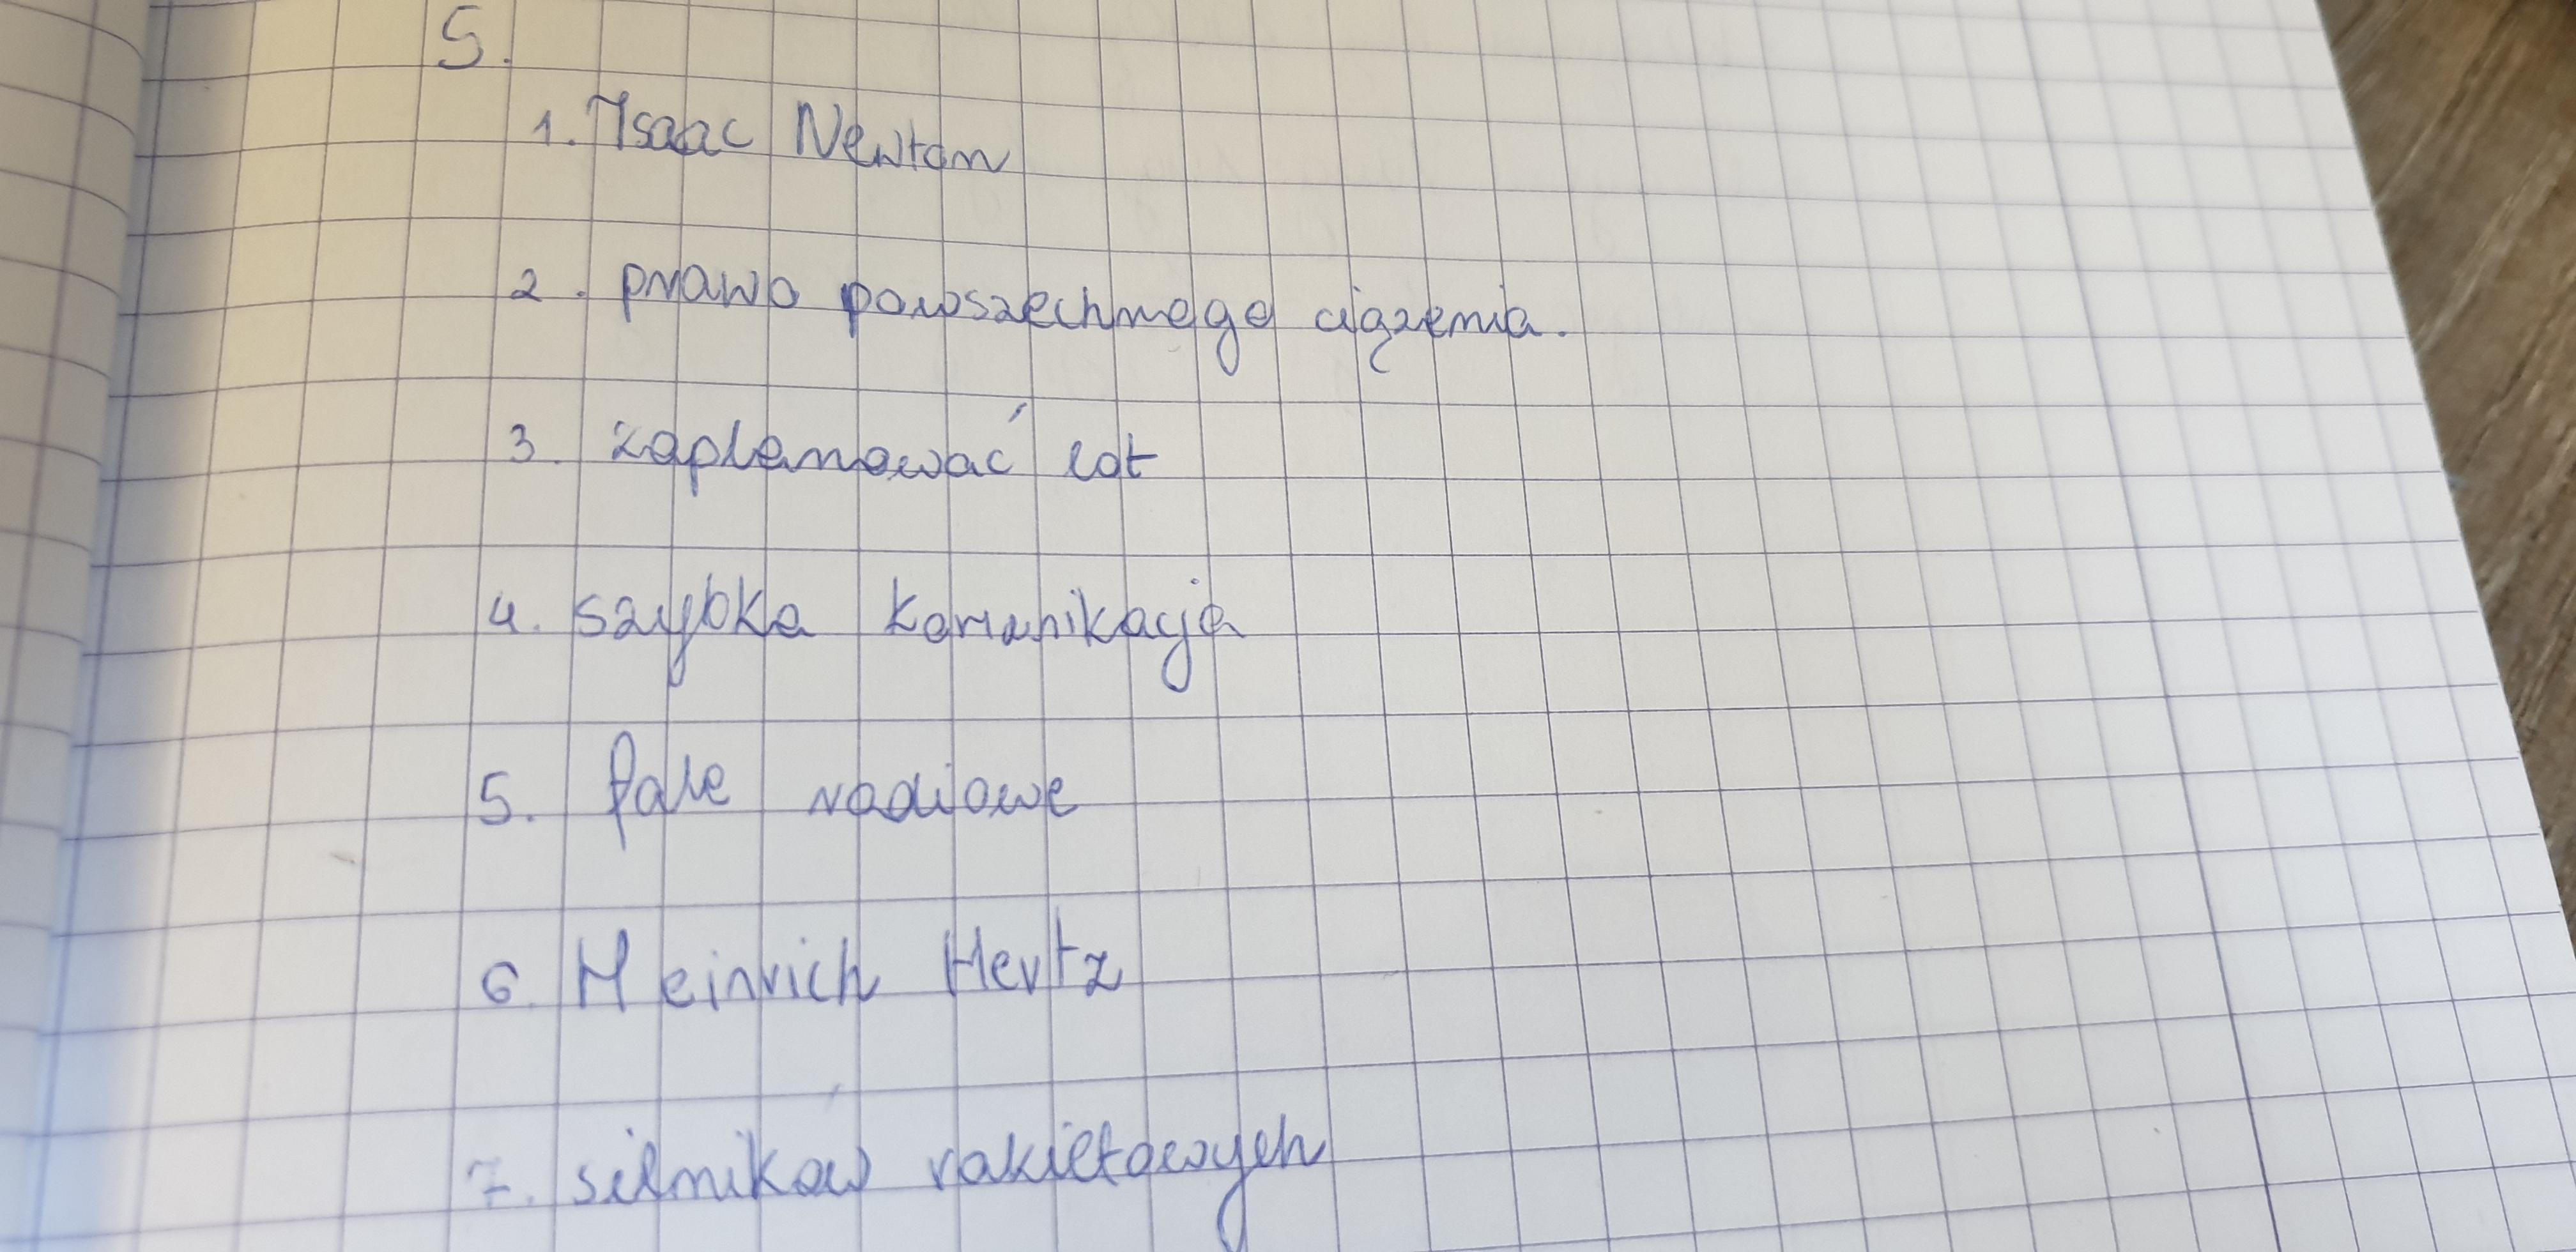 5.
1. Isaac Newton
2. prawo powszechnego ciązenia.
3. zaplanować lot
4. szybka komunikacja
5. fale radiowe
6. Heinrich Hertz
7. silników rakietowych